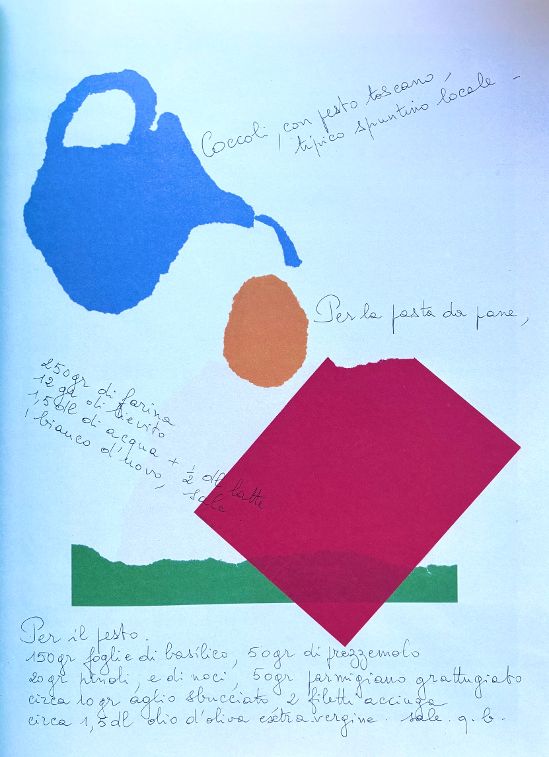 Coccoli, con pesto toscano,
tipico spuntino locale -
Per la pasta da pane,
250gr di farina
12 gr di lievito
1,5 dl di acqua + ½ dl latte
1 bianco d'uovo, sale.
Per il pesto.
150gr foglie di basilico, 50gr di prezzemolo
20gr pinoli, e di noci, 50gr parmigiano grattugiato
circa 10gr aglio sbucciato 2 filetti acciuga
circa 1,5dl olio d'oliva extravergine. sale. q. b.